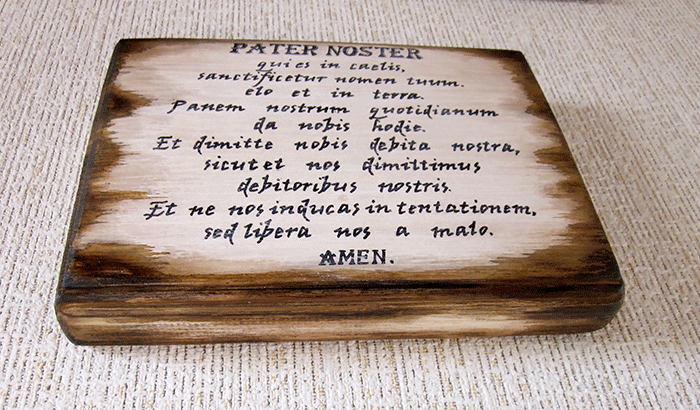 PATER NOSTER
qui es in caelis,
sanctificetur nomen tuum.
elo et in terra.
Panem nostrum quotidianum
da nobis hodie.
Et dimitte nobis debita nostra,
sicut et nos dimittimus
debitoribus nostris.
Et ne nos inducas in tentationem,
sed libera nos a malo.
AMEN.